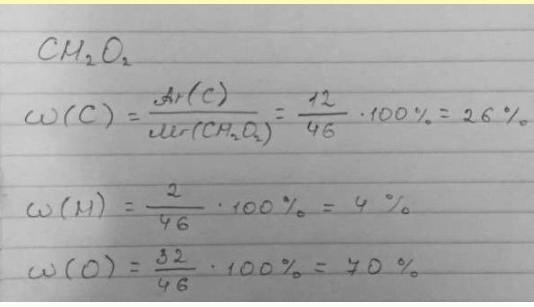 CH₂O₂
ω(C) = Ar(C)/Mr(CH₂O₂) = 12/46 · 100% = 26%
ω(H) = 2/46 · 100% = 4%
ω(O) = 32/46 · 100% = 70%